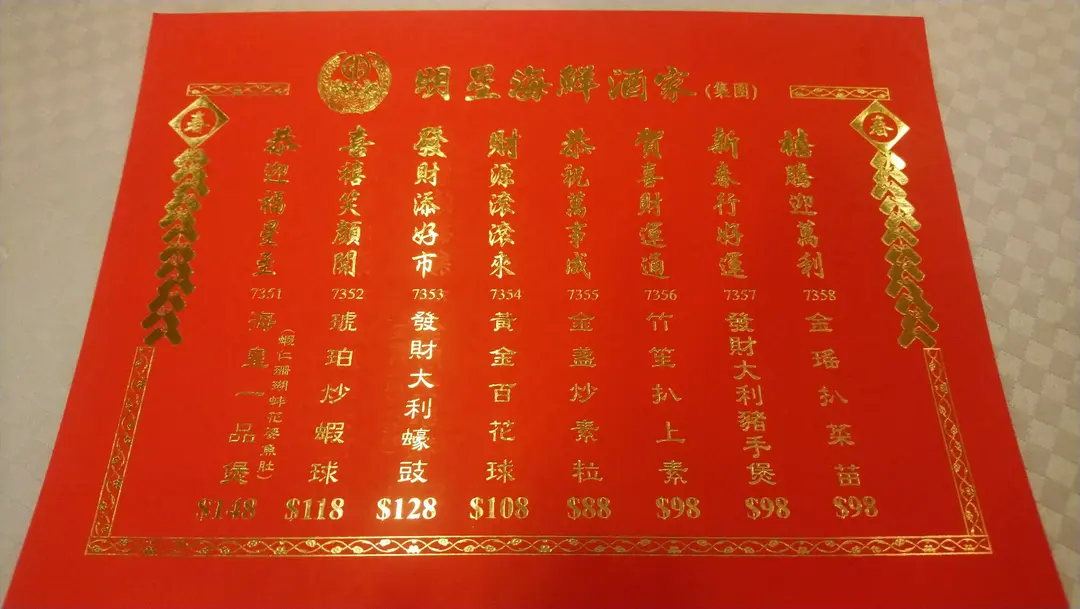 明星海鮮酒家(集團)
春
春
恭迎福星至
7351
海皇一品煲
(蝦仁珊瑚蚌花姿魚肚)
$148
喜禧笑顏開
7352
琥珀炒蝦球
$118
發財添好市
7353
發財大利蠔豉
$128
財源滾滾來
7354
黃金百花球
$108
恭祝萬事成
7355
金盞炒素粒
$88
賀喜財運通
7356
竹笙扒上素
$98
新春行好運
7357
發財大利豬手煲
$98
禧騰迎萬利
7358
金瑤扒菜苗
$98